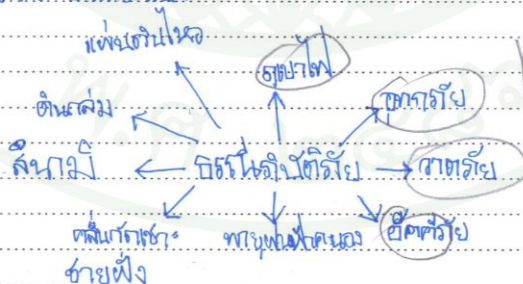 แผ่นดินไหว
ภูเขาไฟ
ดินถล่ม
อุทกภัย
สึนามิ
ธรณีพิบัติภัย
วาตภัย
คลื่นกัดเซาะ
ชายฝั่ง
พายุฝนฟ้าคะนอง
อัคคีภัย